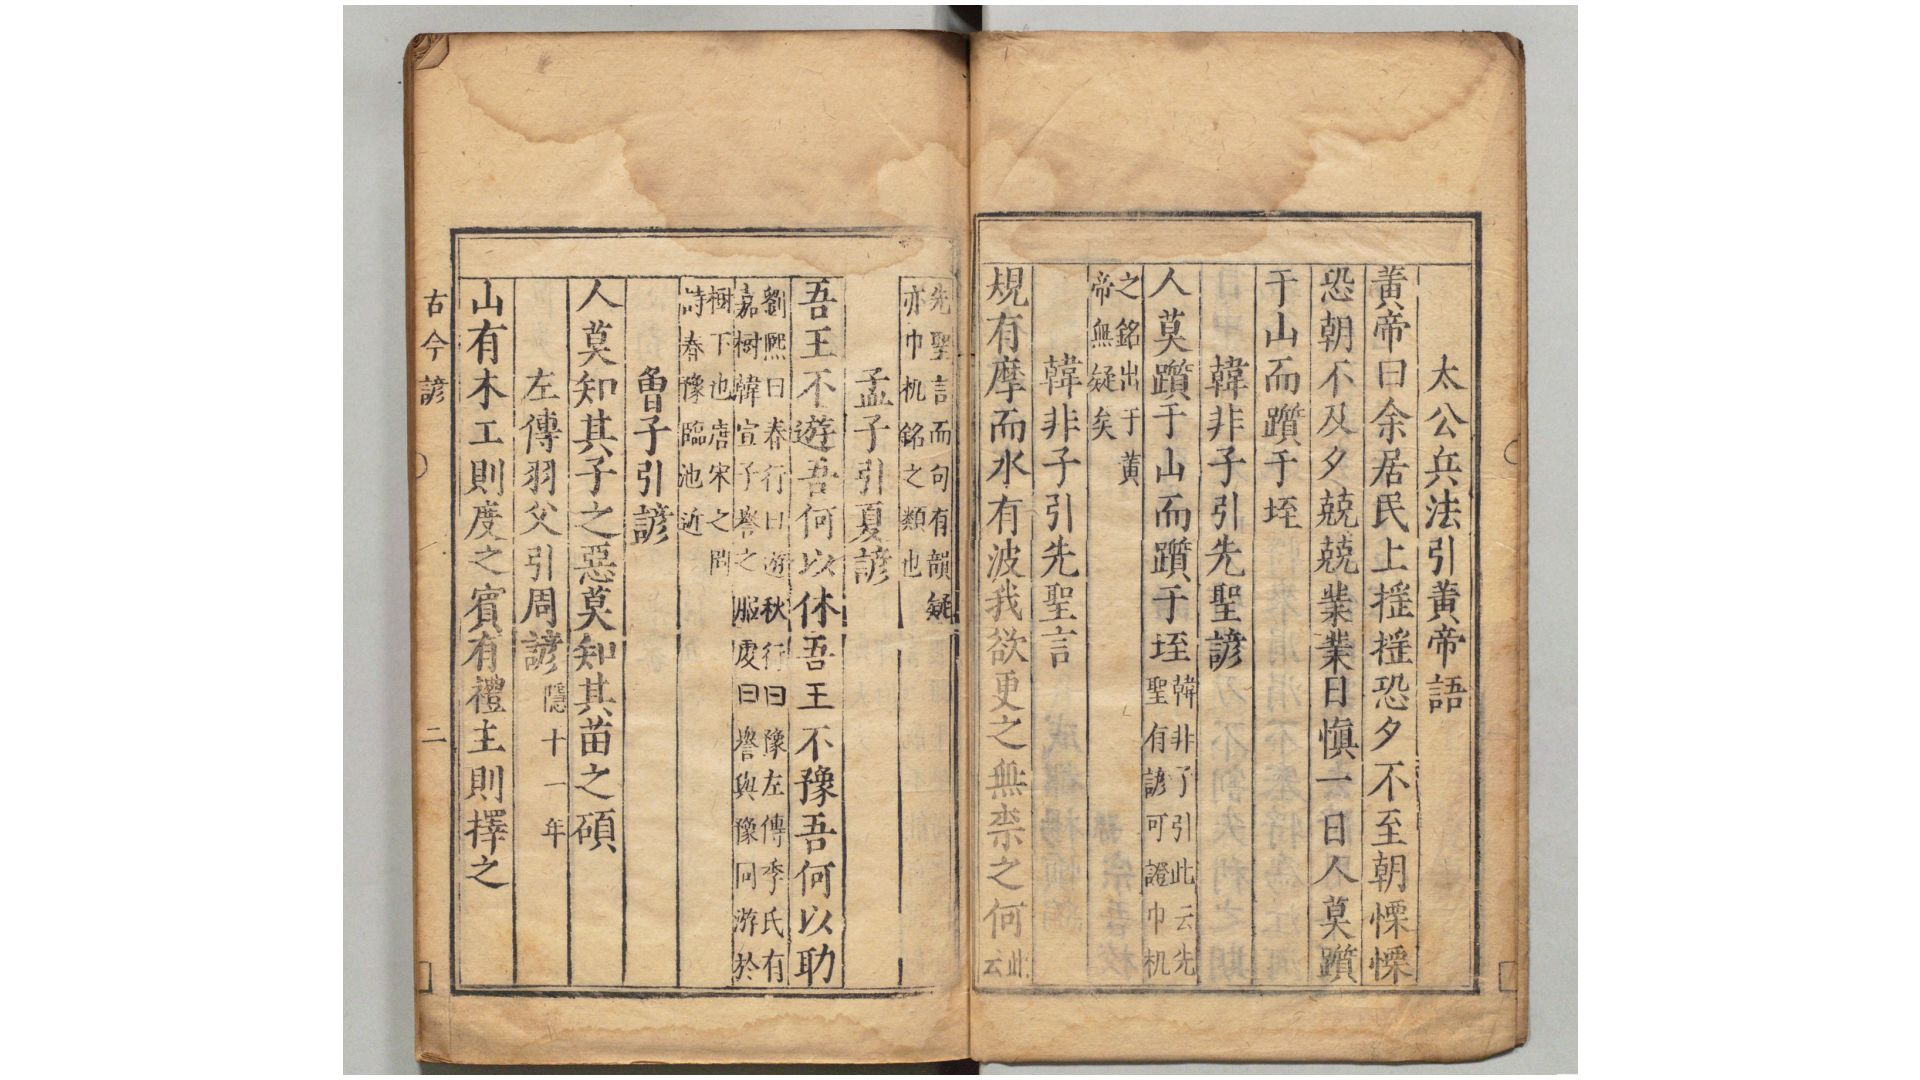 太公兵法引黃帝語
黃帝曰余居民上揺揺恐夕不至朝慄慄
恐朝不及夕兢兢業業日愼一日人莫躓
于山而躓于垤
韓非子引先聖諺
人莫躓于山而躓于垤韓非子引此云先
聖有諺可證巾机
之銘出于黃
帝無疑矣
韓非子引先聖言
規有摩而水有波我欲更之無柰之何此
云
先聖言而句有韻疑
亦巾机銘之類也
孟子引夏諺
吾王不遊吾何以休吾王不豫吾何以助
劉熙曰春行曰遊秋行曰豫左傳季氏有
嘉樹韓宣子譽之服虔曰譽與豫同游於
樹下也唐宋之間
詩春豫臨池近
魯子引諺
人莫知其子之惡莫知其苗之碩
左傳羽父引周諺隱十一年
山有木工則度之賓有禮主則擇之
古今諺
二